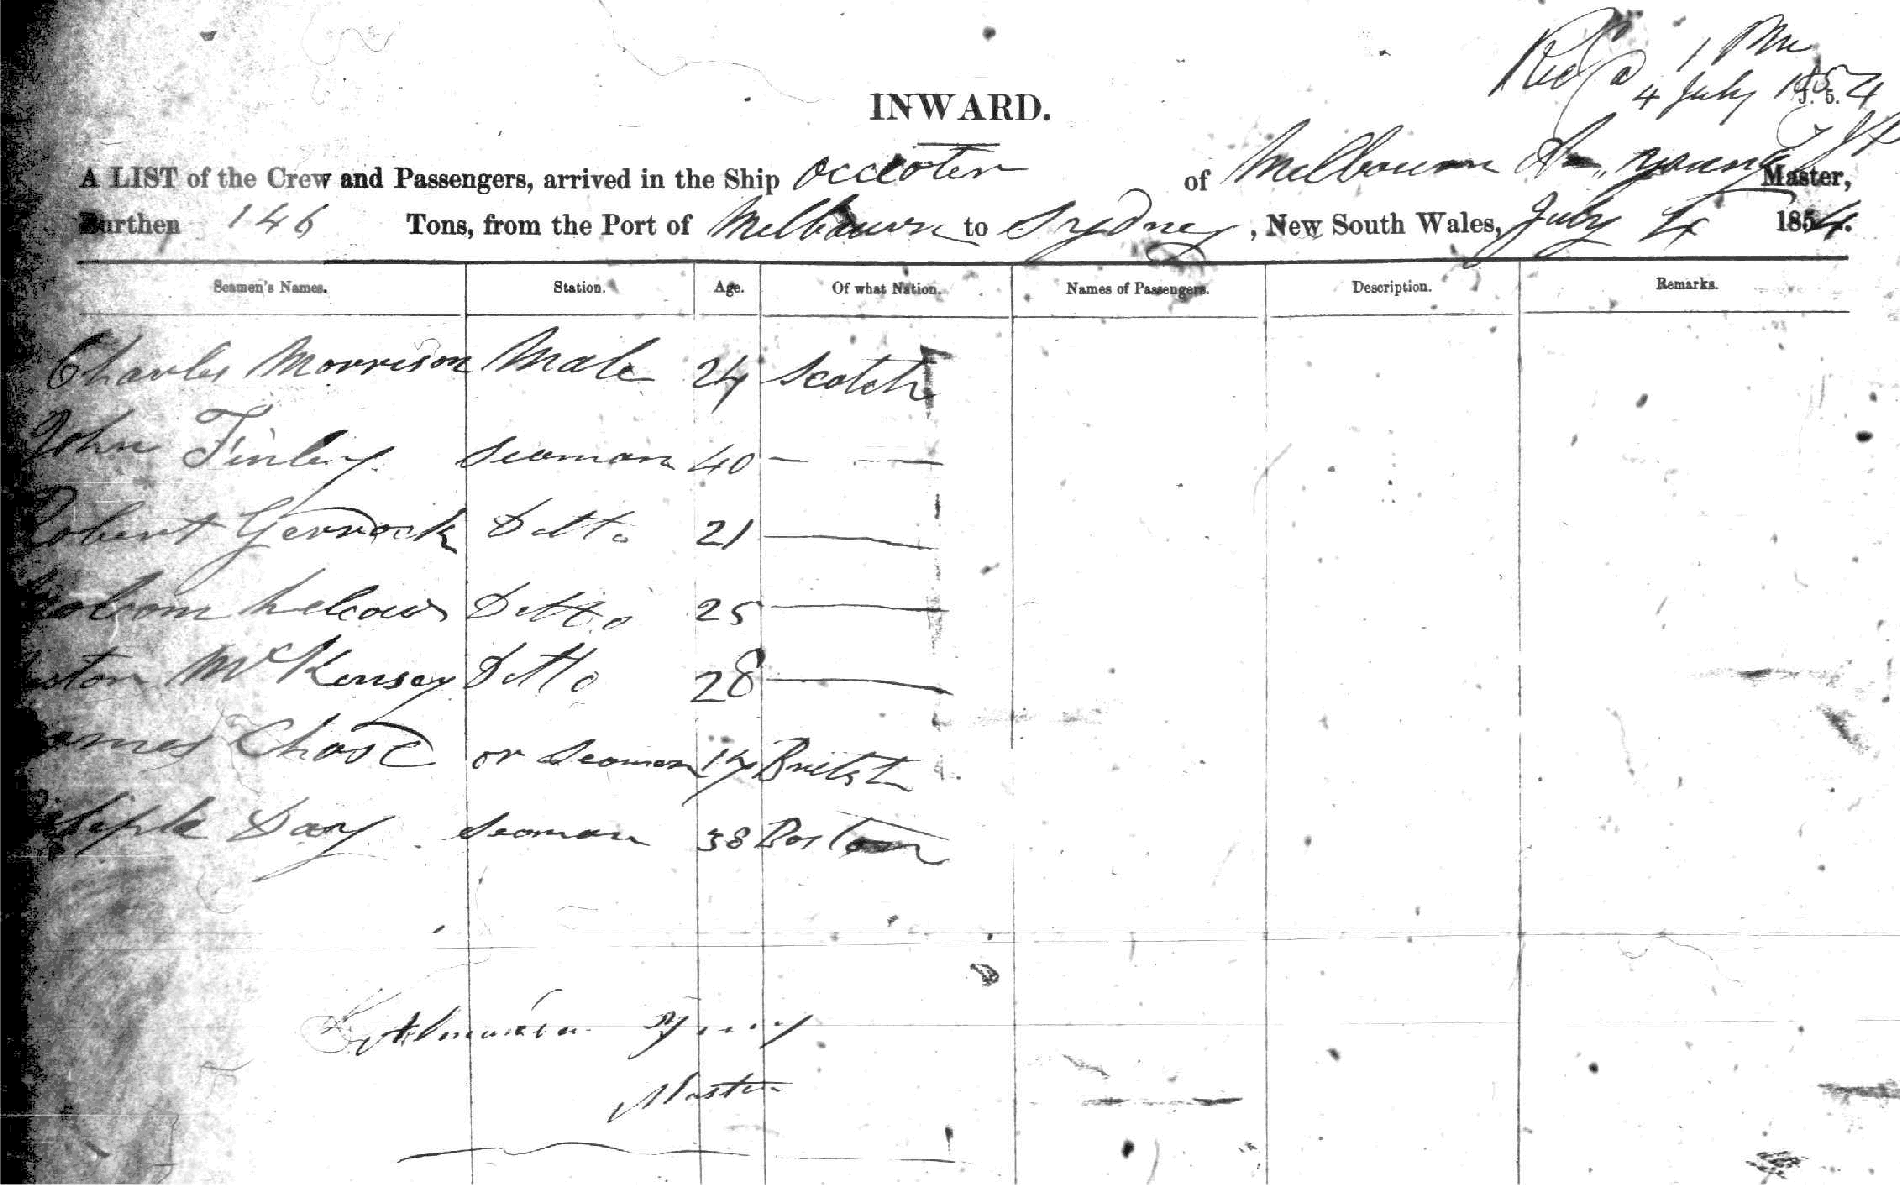 Recd @ 1 Pm
4 July 1854
INWARD.
A LIST of the Crew and Passengers, arrived in the Ship Occloter of Melbourn Young Master,
Burthen 146 Tons, from the Port of Melbourn to Sydney, New South Wales, July 4 1854.
Seamen's Names. Station. Age. Of what Nation. Names of Passengers. Description. Remarks.
Charles Morrison Mate 24 Scotch
John Finley Seaman 40 — —
Robert Gerrock Ditto 21 —
Ditto 25 —
McKensey Ditto 28 —
James Chase or Seaman 17
Day Seaman 38 Boston
Master